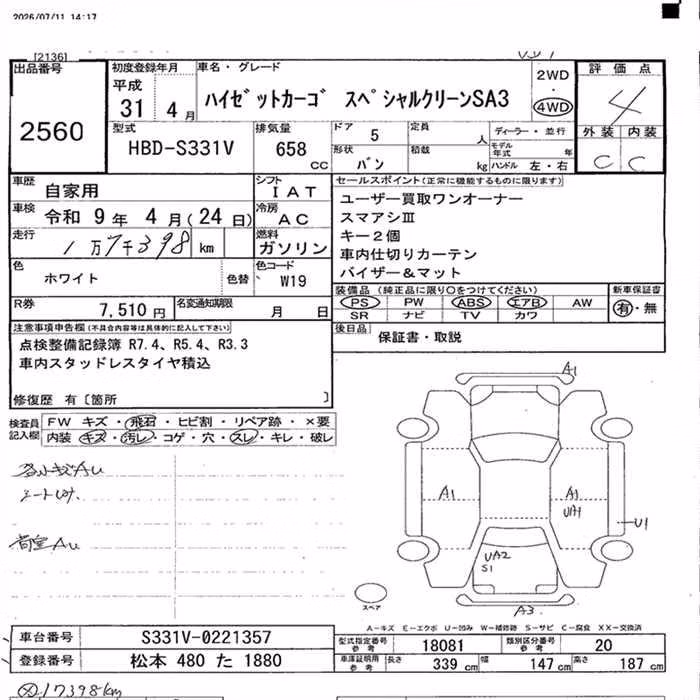 2026/07/11 14:17
[2136]
出品番号
2560
初度登録年月
平成
31 4 月
車名・グレード
ハイゼットカーゴ スペシャルクリーンSA3
2WD
・
4WD
評価点
4
外装 内装
C C
型式
HBD-S331V
排気量
658 CC
ドア 5
定員 人
形状 バン
積載 kg
ディーラー・並行
モデル年式 年
ハンドル 左・右
車歴 自家用
シフト IAT
車検 令和 9 年 4 月(24 日)
冷房 AC
走行 1万7千398 km
燃料 ガソリン
色 ホワイト
色替
色コード W19
R券 7,510 円
名変通知期限 月 日
セールスポイント(正常に機能するものに限ります)
ユーザー買取ワンオーナー
スマアシⅢ
キー2個
車内仕切りカーテン
バイザー&マット
装備品 (純正品に限り○をつけてください)
PS PW ABS エアB AW
SR ナビ TV カワ
新車保証書
有・無
後日品 保証書・取説
注意事項申告欄(不具合内容等は具体的に記入して下さい)
点検整備記録簿 R7.4、R5.4、R3.3
車内スタッドレスタイヤ積込
修復歴 有〔箇所 〕
検査員記入欄
FW キズ・飛石・ヒビ割・リペア跡・×要
内装 キズ・汚レ・コゲ・穴・スレ・キレ・破レ
A1
A1
A1
UA1
U1
UA2
S1
A3
スペア
A-キズ E-エクボ U-凹み W-補修跡 S-サビ C-腐食 XX-交換済
車台番号 S331V-0221357
登録番号 松本 480 た 1880
型式指定番号 参考 18081
類別区分番号 参考 20
車庫証明用 参考 長さ 339 cm 幅 147 cm 高さ 187 cm
17398km